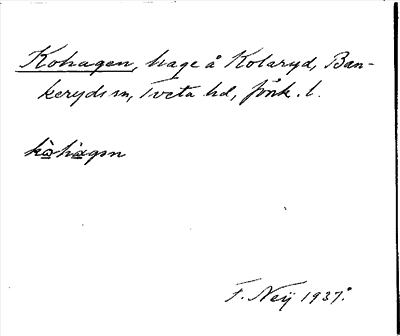 Kohagen, hage å Kolaryd, Ban-
keryds sn, Tveta hd, Jönk. l.
kòhàgɘn
F. Neij 1937.